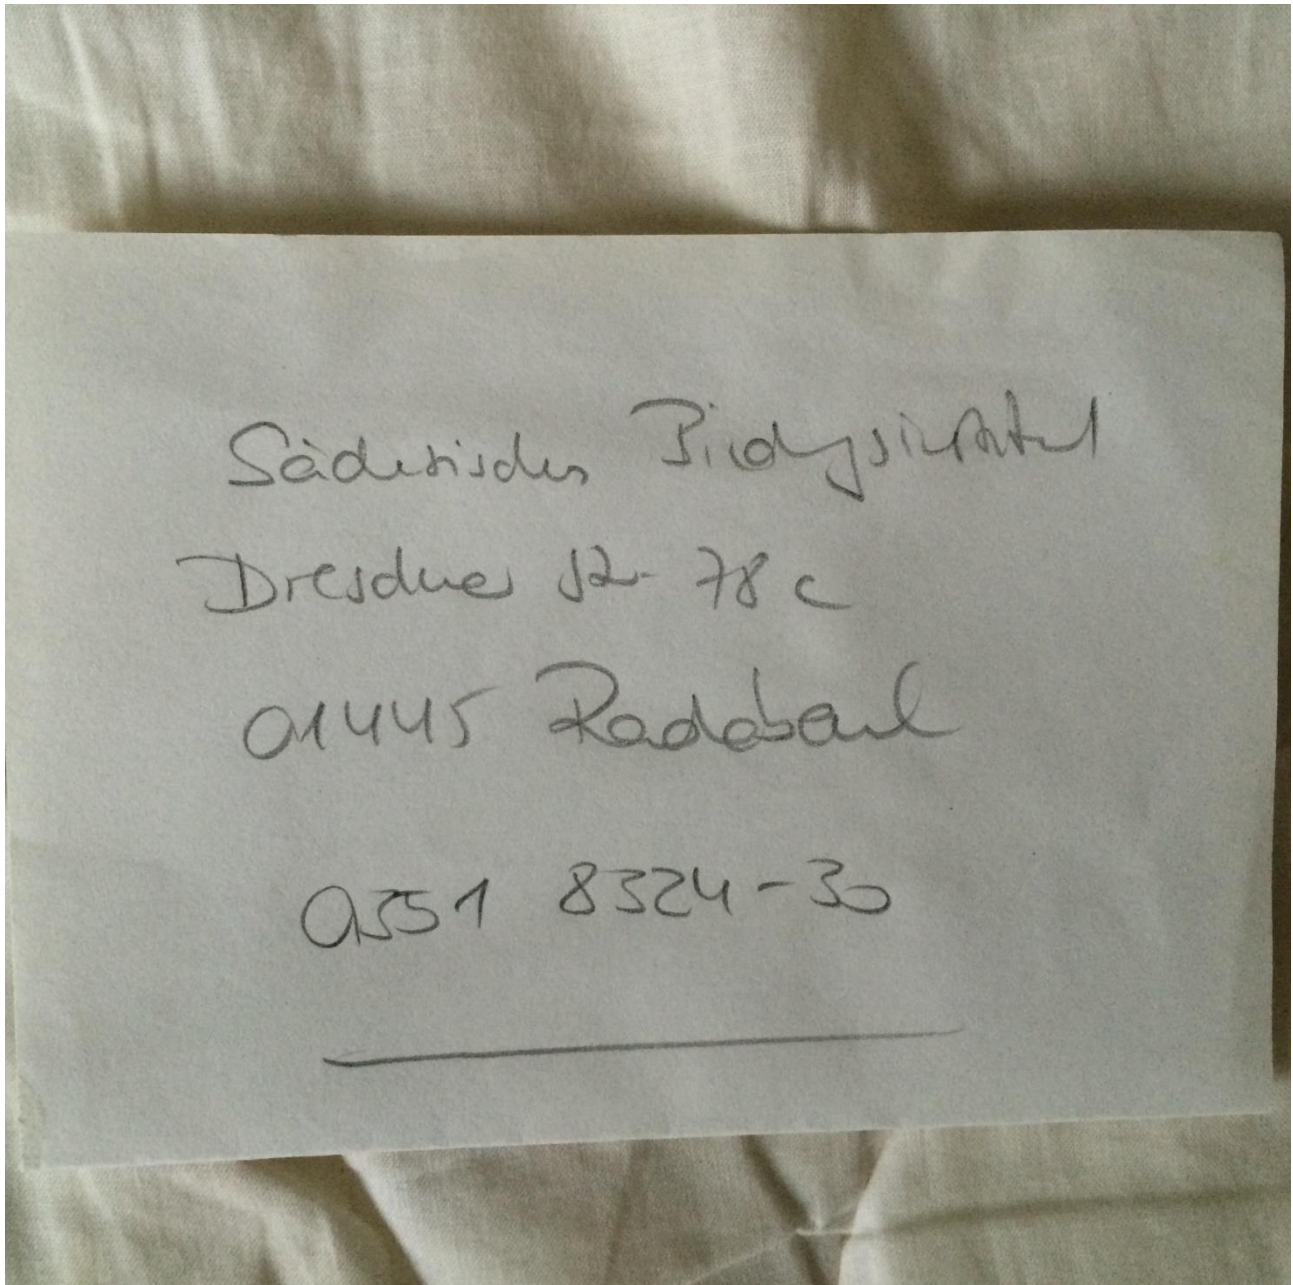 Sächsisches Bildungsinstitut
Dresdner Str. 78 c
01445 Radebeul
0351 8324-30